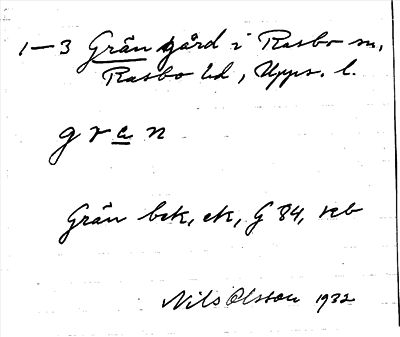 1–3 Grän gård i Rasbo sn,
Rasbo hd, Upps. l.
gran
Grän bek, ek, G 84, rkb
Nils Olsson 1932